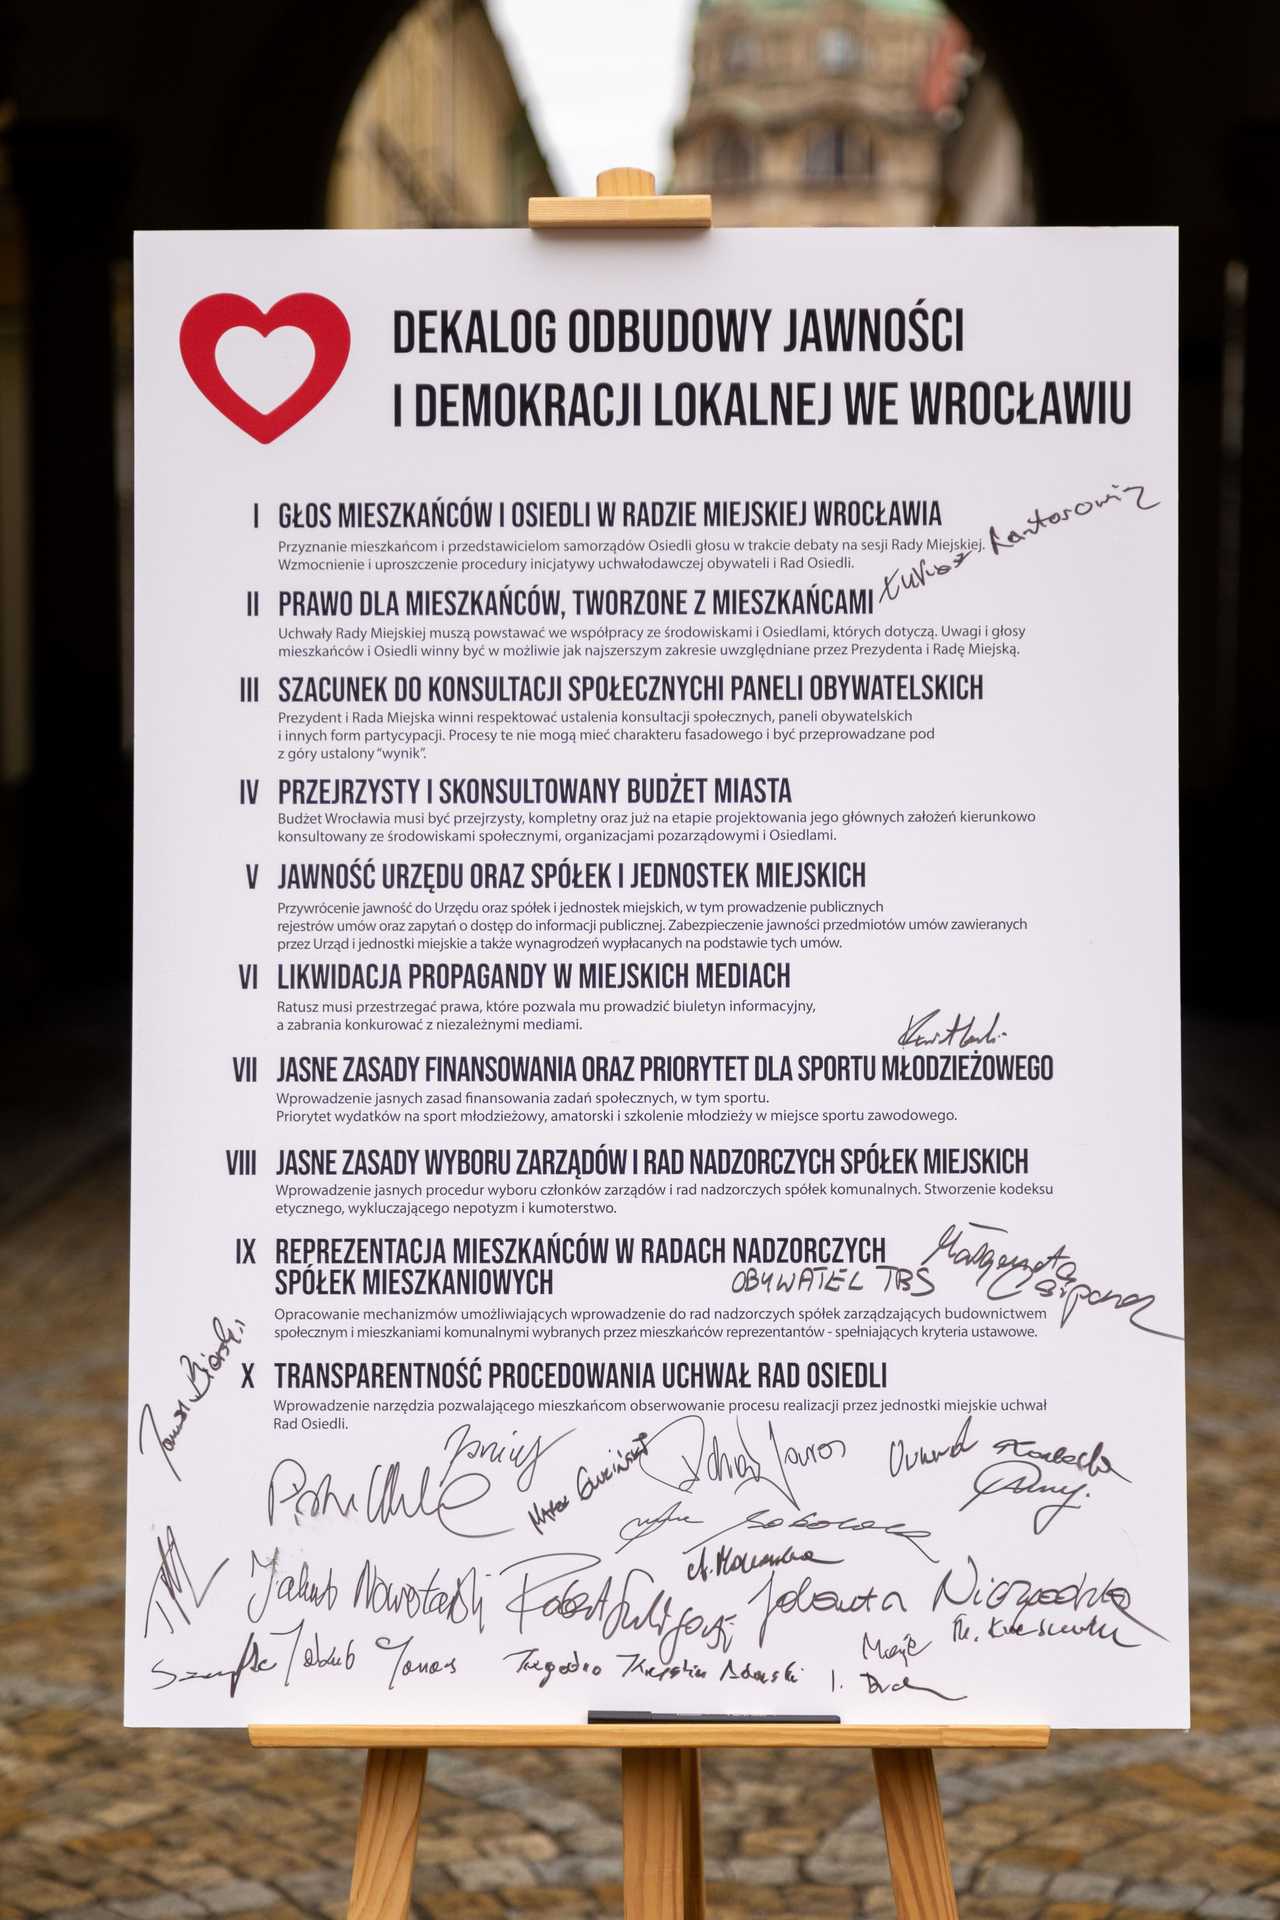 DEKALOG ODBUDOWY JAWNOŚCI
I DEMOKRACJI LOKALNEJ WE WROCŁAWIU
I GŁOS MIESZKAŃCÓW I OSIEDLI W RADZIE MIEJSKIEJ WROCŁAWIA
Przyznanie mieszkańcom i przedstawicielom samorządów Osiedli głosu w trakcie debaty na sesji Rady Miejskiej.
Wzmocnienie i uproszczenie procedury inicjatywy uchwałodawczej obywateli i Rad Osiedli.
II PRAWO DLA MIESZKAŃCÓW, TWORZONE Z MIESZKAŃCAMI
Uchwały Rady Miejskiej muszą powstawać we współpracy ze środowiskami i Osiedlami, których dotyczą. Uwagi i głosy
mieszkańców i Osiedli winny być w możliwie jak najszerszym zakresie uwzględniane przez Prezydenta i Radę Miejską.
III SZACUNEK DO KONSULTACJI SPOŁECZNYCHI PANELI OBYWATELSKICH
Prezydent i Rada Miejska winni respektować ustalenia konsultacji społecznych, paneli obywatelskich
i innych form partycypacji. Procesy te nie mogą mieć charakteru fasadowego i być przeprowadzane pod
z góry ustalony "wynik".
IV PRZEJRZYSTY I SKONSULTOWANY BUDŻET MIASTA
Budżet Wrocławia musi być przejrzysty, kompletny oraz już na etapie projektowania jego głównych założeń kierunkowo
konsultowany ze środowiskami społecznymi, organizacjami pozarządowymi i Osiedlami.
V JAWNOŚĆ URZĘDU ORAZ SPÓŁEK I JEDNOSTEK MIEJSKICH
Przywrócenie jawność do Urzędu oraz spółek i jednostek miejskich, w tym prowadzenie publicznych
rejestrów umów oraz zapytań o dostęp do informacji publicznej. Zabezpieczenie jawności przedmiotów umów zawieranych
przez Urząd i jednostki miejskie a także wynagrodzeń wypłacanych na podstawie tych umów.
VI LIKWIDACJA PROPAGANDY W MIEJSKICH MEDIACH
Ratusz musi przestrzegać prawa, które pozwala mu prowadzić biuletyn informacyjny,
a zabrania konkurować z niezależnymi mediami.
VII JASNE ZASADY FINANSOWANIA ORAZ PRIORYTET DLA SPORTU MŁODZIEŻOWEGO
Wprowadzenie jasnych zasad finansowania zadań społecznych, w tym sportu.
Priorytet wydatków na sport młodzieżowy, amatorski i szkolenie młodzieży w miejsce sportu zawodowego.
VIII JASNE ZASADY WYBORU ZARZĄDÓW I RAD NADZORCZYCH SPÓŁEK MIEJSKICH
Wprowadzenie jasnych procedur wyboru członków zarządów i rad nadzorczych spółek komunalnych. Stworzenie kodeksu
etycznego, wykluczającego nepotyzm i kumoterstwo.
IX REPREZENTACJA MIESZKAŃCÓW W RADACH NADZORCZYCH
SPÓŁEK MIESZKANIOWYCH
OBYWATEL TBS Małgorzata
Opracowanie mechanizmów umożliwiających wprowadzenie do rad nadzorczych spółek zarządzających budownictwem
społecznym i mieszkaniami komunalnymi wybranych przez mieszkańców reprezentantów - spełniających kryteria ustawowe.
X TRANSPARENTNOŚĆ PROCEDOWANIA UCHWAŁ RAD OSIEDLI
Wprowadzenie narzędzia pozwalającego mieszkańcom obserwowanie procesu realizacji przez jednostki miejskie uchwał
Rad Osiedli.
Jakub Nowotarski Robert
Jolanta Niezgodzka
Jakub Janas